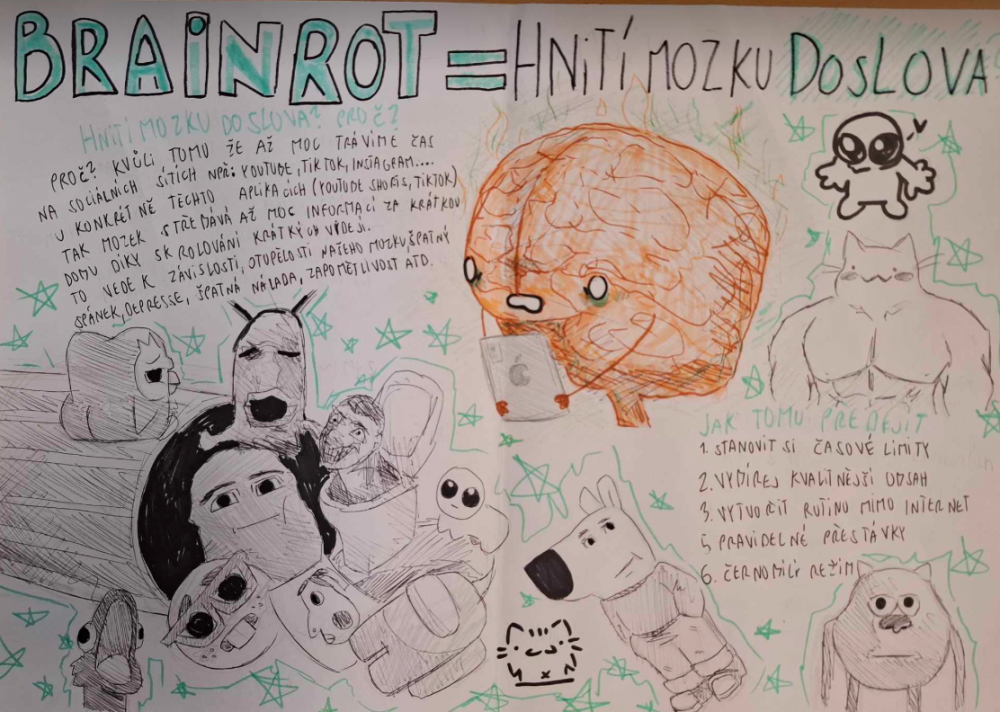 BRAINROT = HNITÍ MOZKU DOSLOVA
HNITÍ MOZKU DOSLOVA? PROČ?
PROČ? KVŮLI TOMU ŽE AŽ MOC TRÁVIME ČAS
NA SOCIÁLNICH SÍTÍCH NPŘ: YOUTUBE, TIKTOK, INSTAGRAM....
U KONKRETNĚ TĚCHTO APLIKACICH (YOUTUBE SHORTS, TIKTOK)
TAK MOZEK STŘEDAVÁ AŽ MOC INFORMACÍ ZA KRÁTKOU
DOBU DÍKY SKROLOVÁNI KRÁTKÝCH VIDEJÍ.
TO VEDE K ZÁVISLOSTI, OTUPĚLOSTI NAŠEHO MOZKU, ŠPATNÝ
SPÁNEK, DEPRESSE, ŠPATNÁ NÁLADA, ZAPOMĚTLIVOST ATD.
JAK TOMU PŘEDEJÍT
1. STANOVIT SI ČASOVÉ LIMITY
2. VYBÍREJ KVALITNĚJŠÍ OBSAH
3. VYTVOŘIT RUTINU MIMO INTERNET
5. PRAVIDELNÉ PŘESTÁVKY
6. ČERNOBILÝ REŽIM